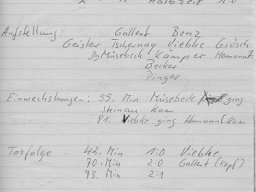 Halbzeit 1:0
Aufstellung: Gallert Benz
Geister Tschernay Viebke Girösch
Müsebeck Kämper Hamann
Becker
Pinger
Einwechslungen: 55. Min Müsebeck ging
Steinau kam
81. Viebke ging Hamann kam
Torfolge: 42. Min 1:0 Viebke
70. Min 2:0 Gallert (Kopf)
73. Min 2:1